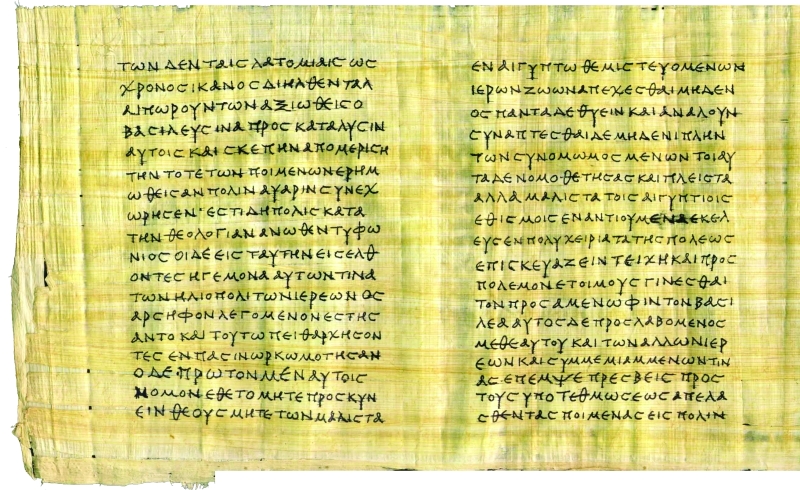 ΤΩΝ ΔΕΝ ΤΑΙΣ ΛΑΤΟΜΙΑΙΣ ΩΣ
ΧΡΟΝΟΣ ΙΚΑΝΟΣ ΔΙΗΛΘΕΝ ΤΑΛ
ΑΙΠΩΡΟΥΝΤΩΝ ΑΞΙΩΘΕΙΣ Ο
ΒΑΣΙΛΕΥΣ ΙΝΑ ΠΡΟΣ ΚΑΤΑΛΥΣΙΝ
ΑΥΤΟΙΣ ΚΑΙ ΣΚΕΠΗΝ ΑΠΟΜΕΡΙΣΗ
ΤΗΝ ΤΟΤΕ ΤΩΝ ΠΟΙΜΕΝΩΝ ΕΡΗΜ
ΩΘΕΙΣΑΝ ΠΟΛΙΝ ΑΥΑΡΙΝ ΣΥΝΕΧ
ΩΡΗΣΕΝ· ΕΣΤΙ ΔΗ ΠΟΛΙΣ ΚΑΤΑ
ΤΗΝ ΘΕΟΛΟΓΙΑΝ ΑΝΩΘΕΝ ΤΥΦΩ
ΝΙΟΣ ΟΙ ΔΕ ΕΙΣ ΤΑΥΤΗΝ ΕΙΣΕΛΘ
ΟΝΤΕΣ ΗΓΕΜΟΝΑ ΑΥΤΩΝ ΤΙΝΑ
ΤΩΝ ΗΛΙΟΠΟΛΙΤΩΝ ΙΕΡΕΩΝ ΟΣ
ΑΡΣΗΦΟΝ ΛΕΓΟΜΕΝΟΝ ΕΣΤΗΣ
ΑΝΤΟ ΚΑΙ ΤΟΥΤΩ ΠΕΙΘΑΡΧΗΣΟΝ
ΤΕΣ ΕΝ ΠΑΣΙΝ ΩΡΚΩΜΟΤΗΣΑΝ
Ο ΔΕ ΠΡΩΤΟΝ ΜΕΝ ΑΥΤΟΙΣ
ΝΟΜΟΝ ΕΘΕΤΟ ΜΗΤΕ ΠΡΟΣΚΥΝ
ΕΙΝ ΘΕΟΥΣ ΜΗΤΕ ΤΩΝ ΜΑΛΙΣΤΑ
ΕΝ ΑΙΓΥΠΤΩ ΘΕΜΙΣΤΕΥΟΜΕΝΩΝ
ΙΕΡΩΝ ΖΩΩΝ ΑΠΕΧΕΣΘΑΙ ΜΗΔΕΝ
ΟΣ ΠΑΝΤΑ ΔΕ ΘΥΕΙΝ ΚΑΙ ΑΝΑΛΟΥΝ
ΣΥΝΑΠΤΕΣΘΑΙ ΔΕ ΜΗΔΕΝΙ ΠΛΗΝ
ΤΩΝ ΣΥΝΟΜΩΜΟΣΜΕΝΩΝ ΤΟΙΑΥ
ΤΑ ΔΕ ΝΟΜΟΘΕΤΗΣΑΣ ΚΑΙ ΠΛΕΙΣΤΑ
ΑΛΛΑ ΜΑΛΙΣΤΑ ΤΟΙΣ ΑΙΓΥΠΤΙΟΙΣ
ΕΘΙΣΜΟΙΣ ΕΝΑΝΤΙΟΥΜΕΝΑ ΕΚΕΛ
ΕΥΣΕΝ ΠΟΛΥΧΕΙΡΙΑ ΤΑ ΤΗΣ ΠΟΛΕΩΣ
ΕΠΙΣΚΕΥΑΖΕΙΝ ΤΕΙΧΗ ΚΑΙ ΠΡΟΣ
ΠΟΛΕΜΟΝ ΕΤΟΙΜΟΥΣ ΓΙΝΕΣΘΑΙ
ΤΟΝ ΠΡΟΣ ΑΜΕΝΩΦΙΝ ΤΟΝ ΒΑΣΙ
ΛΕΑ ΑΥΤΟΣ ΔΕ ΠΡΟΣΛΑΒΟΜΕΝΟΣ
ΜΕΘΕΑΥΤΟΥ ΚΑΙ ΤΩΝ ΑΛΛΩΝ ΙΕΡ
ΕΩΝ ΚΑΙ ΣΥΜΜΕΜΙΑΜΜΕΝΩΝ ΤΙΝ
ΑΣ ΕΠΕΜΨΕ ΠΡΕΣΒΕΙΣ ΠΡΟΣ
ΤΟΥΣ ΥΠΟ ΤΕΘΜΩΣΕΩΣ ΑΠΕΛΑ
ΣΘΕΝΤΑΣ ΠΟΙΜΕΝΑΣ ΕΙΣ ΠΟΛΙΝ